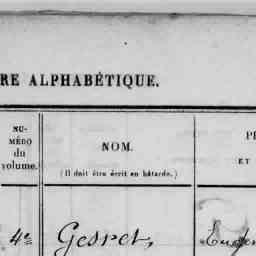 RE ALPHABÉTIQUE.
NU-
MÉRO
du
volume.
NOM.
(Il doit être écrit en bâtarde.)
P
ET
4e Gesret,